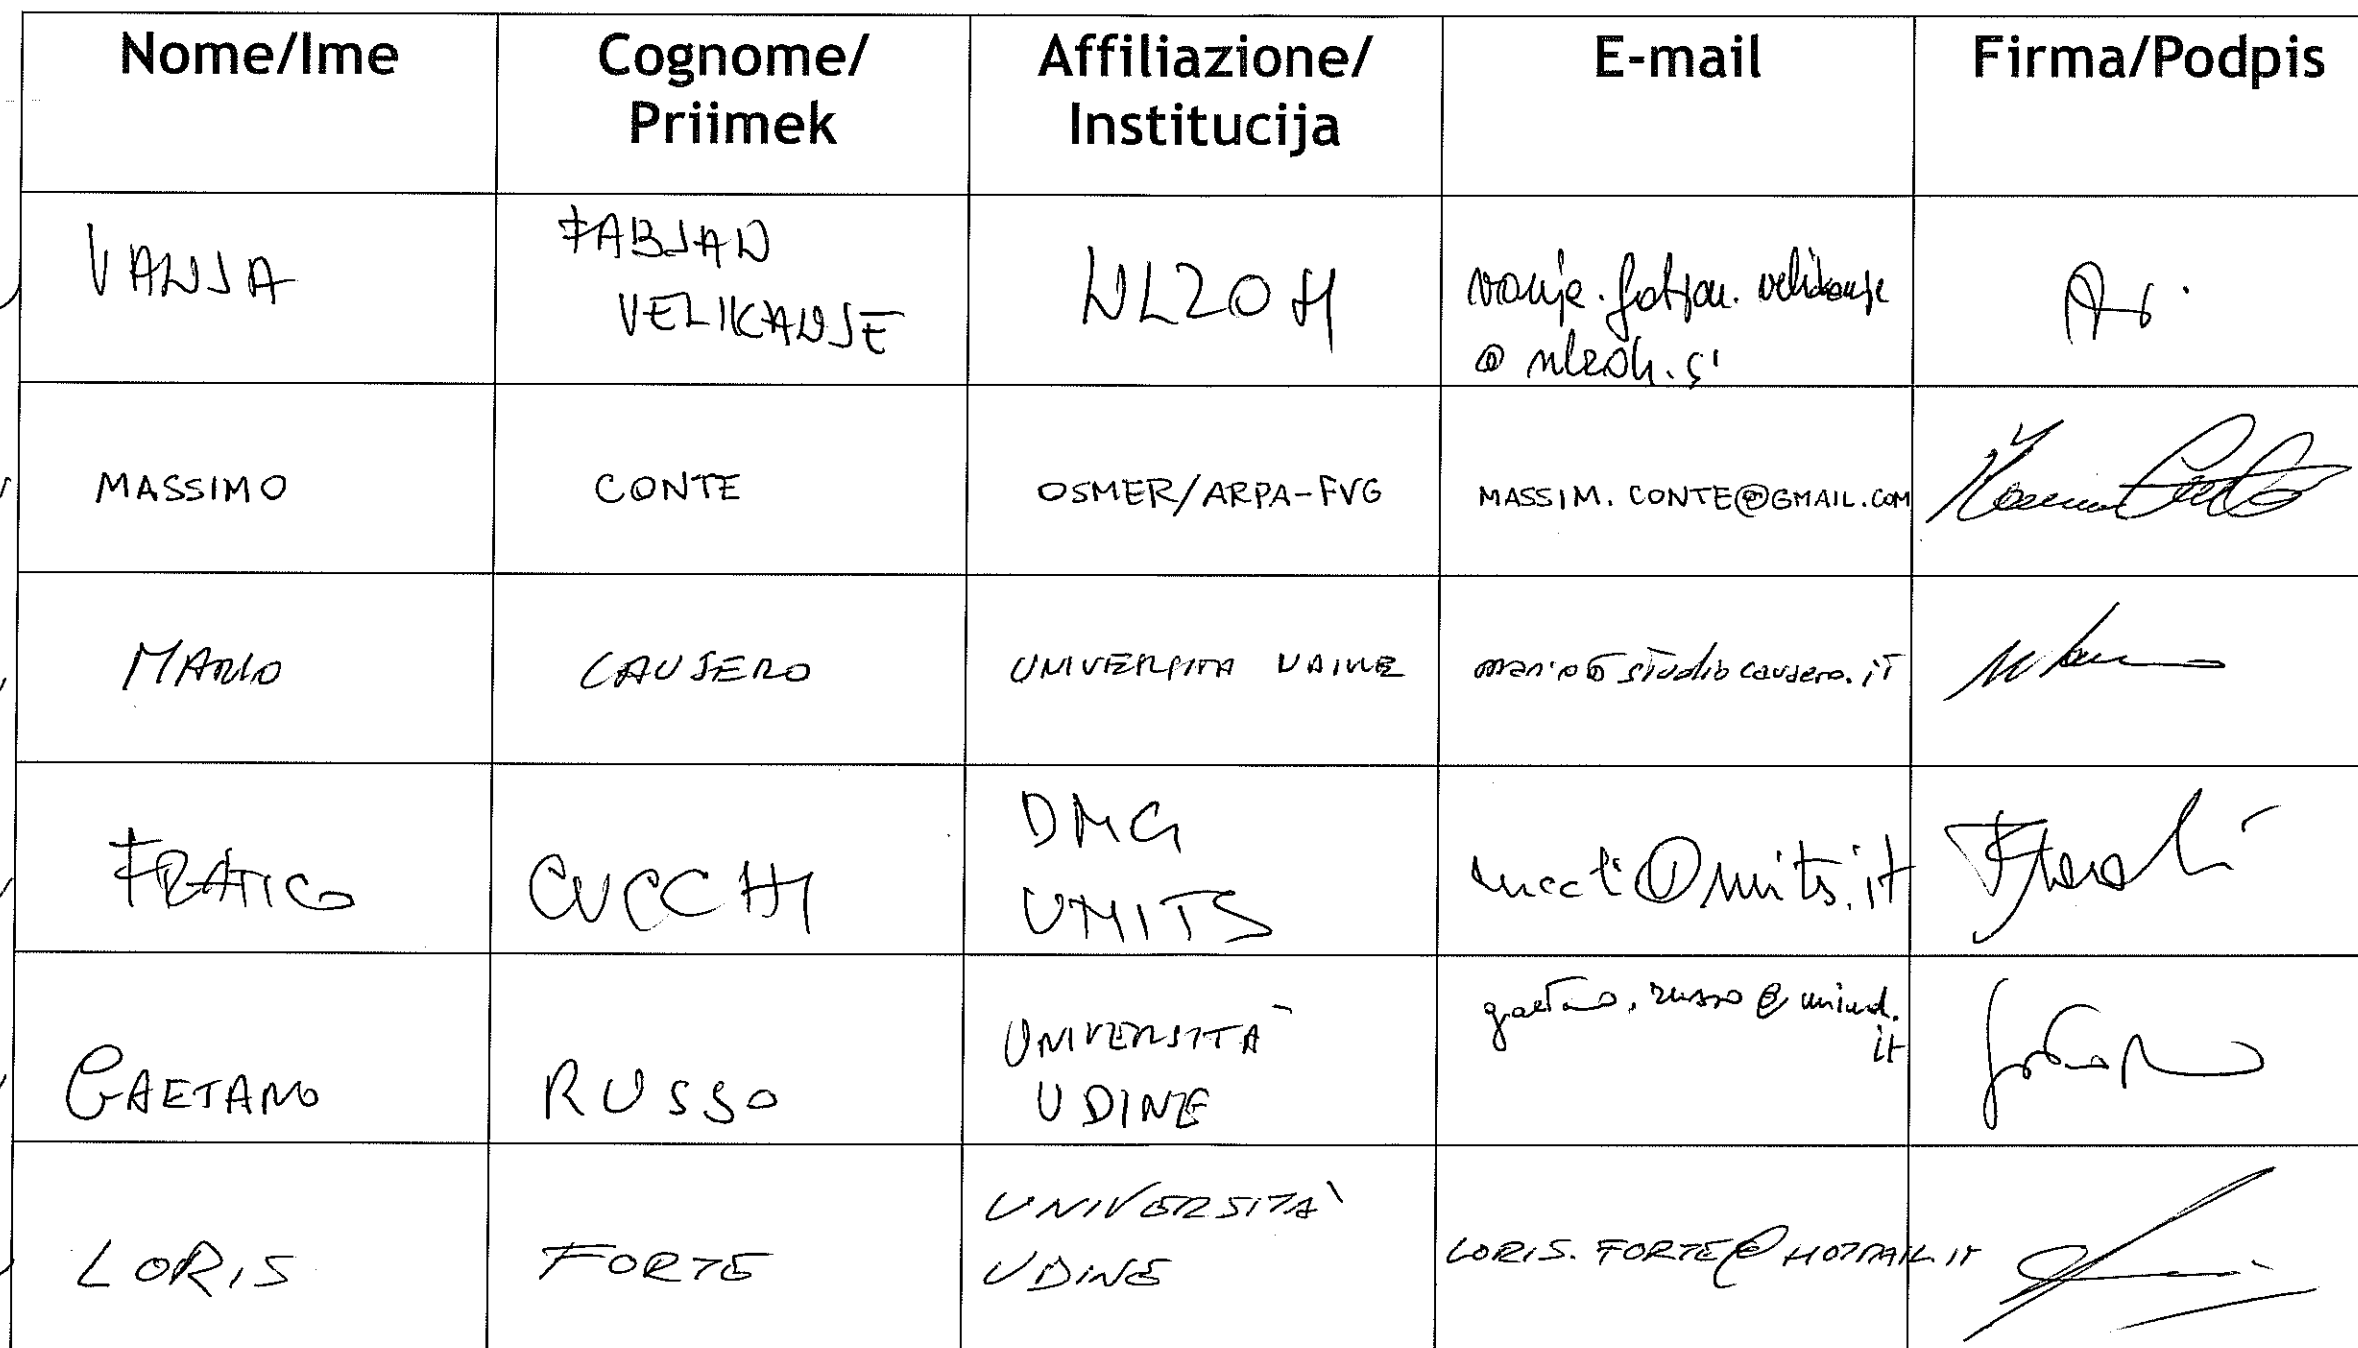 Nome/Ime
Cognome/
Priimek
Affiliazione/
Institucija
E-mail
Firma/Podpis
VANJA
FABJAN
VELIKANJE
NLZOH
vanja.fabjan.velikanje
@nlzoh.si
MASSIMO
CONTE
OSMER/ARPA-FVG
MASSIM.CONTE@GMAIL.COM
MARIO
CAUSERO
UNIVERSITA UDINE
mario@studiocausero.it
FRANCO
CUCCHI
DMG
UNITS
cucchi@units.it
GAETANO
RUSSO
UNIVERSITÀ
UDINE
gaetano.russo@uniud.
it
LORIS
FORTE
UNIVERSITA'
UDINE
LORIS.FORTE@HOTMAIL.IT